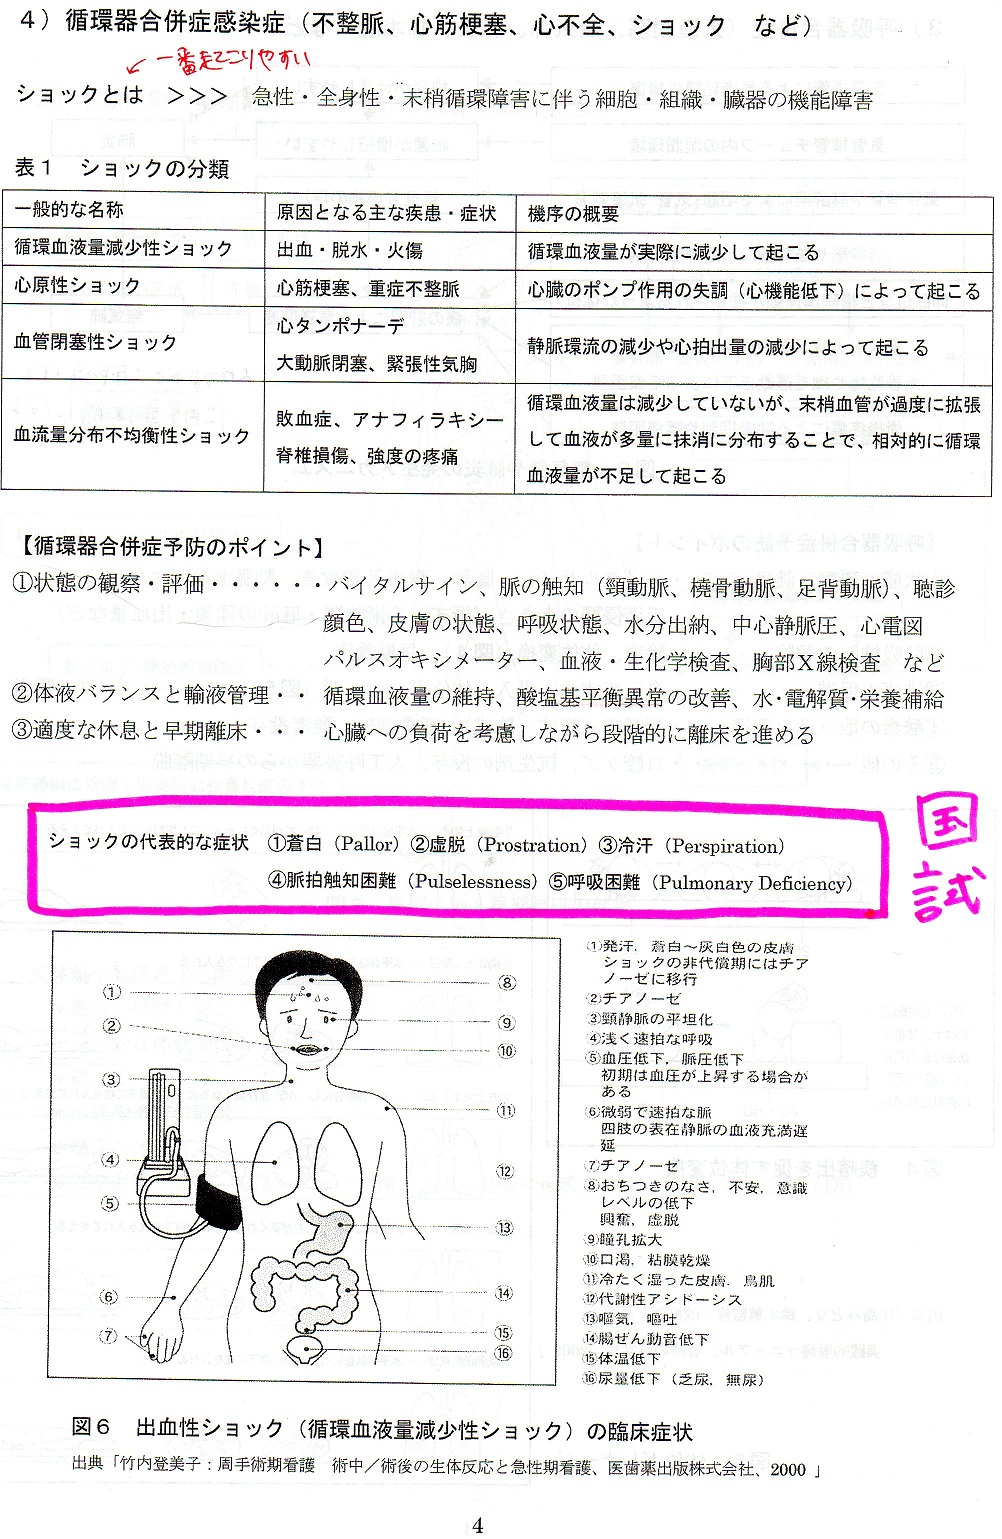 4）循環器合併症感染症（不整脈、心筋梗塞、心不全、ショック　など）
一番起こりやすい
ショックとは　＞＞＞　急性・全身性・末梢循環障害に伴う細胞・組織・臓器の機能障害
表１　ショックの分類
一般的な名称　原因となる主な疾患・症状　機序の概要
循環血液量減少性ショック　出血・脱水・火傷　循環血液量が実際に減少して起こる
心原性ショック　心筋梗塞、重症不整脈　心臓のポンプ作用の失調（心機能低下）によって起こる
血管閉塞性ショック　心タンポナーデ
大動脈閉塞、緊張性気胸　静脈環流の減少や心拍出量の減少によって起こる
血流量分布不均衡性ショック　敗血症、アナフィラキシー
脊椎損傷、強度の疼痛
循環血液量は減少していないが、末梢血管が過度に拡張
して血液が多量に抹消に分布することで、相対的に循環
血液量が不足して起こる
【循環器合併症予防のポイント】
①状態の観察・評価・・・・・・バイタルサイン、脈の触知（頸動脈、橈骨動脈、足背動脈）、聴診
顔色、皮膚の状態、呼吸状態、水分出納、中心静脈圧、心電図
パルスオキシメーター、血液・生化学検査、胸部Ｘ線検査　など
②体液バランスと輸液管理・・　循環血液量の維持、酸塩基平衡異常の改善、水・電解質・栄養補給
③適度な休息と早期離床・・・　心臓への負荷を考慮しながら段階的に離床を進める
ショックの代表的な症状　①蒼白（Pallor）②虚脱（Prostration）③冷汗（Perspiration）
④脈拍触知困難（Pulselessness）⑤呼吸困難（Pulmonary Deficiency）
国試
①
②
③
④
⑤
⑥
⑦
⑧
⑨
⑩
⑪
⑫
⑬
⑭
⑮
⑯
①発汗，蒼白～灰白色の皮膚
ショックの非代償期にはチア
ノーゼに移行
②チアノーゼ
③頸静脈の平坦化
④浅く速拍な呼吸
⑤血圧低下，脈圧低下
初期は血圧が上昇する場合が
ある
⑥微弱で速拍な脈
四肢の表在静脈の血液充満遅
延
⑦チアノーゼ
⑧おちつきのなさ，不安，意識
レベルの低下
興奮，虚脱
⑨瞳孔拡大
⑩口渇，粘膜乾燥
⑪冷たく湿った皮膚．鳥肌
⑫代謝性アシドーシス
⑬嘔気，嘔吐
⑭腸ぜん動音低下
⑮体温低下
⑯尿量低下（乏尿，無尿）
図６　出血性ショック（循環血液量減少性ショック）の臨床症状
出典「竹内登美子：周手術期看護　術中／術後の生体反応と急性期看護、医歯薬出版株式会社、2000 」
4